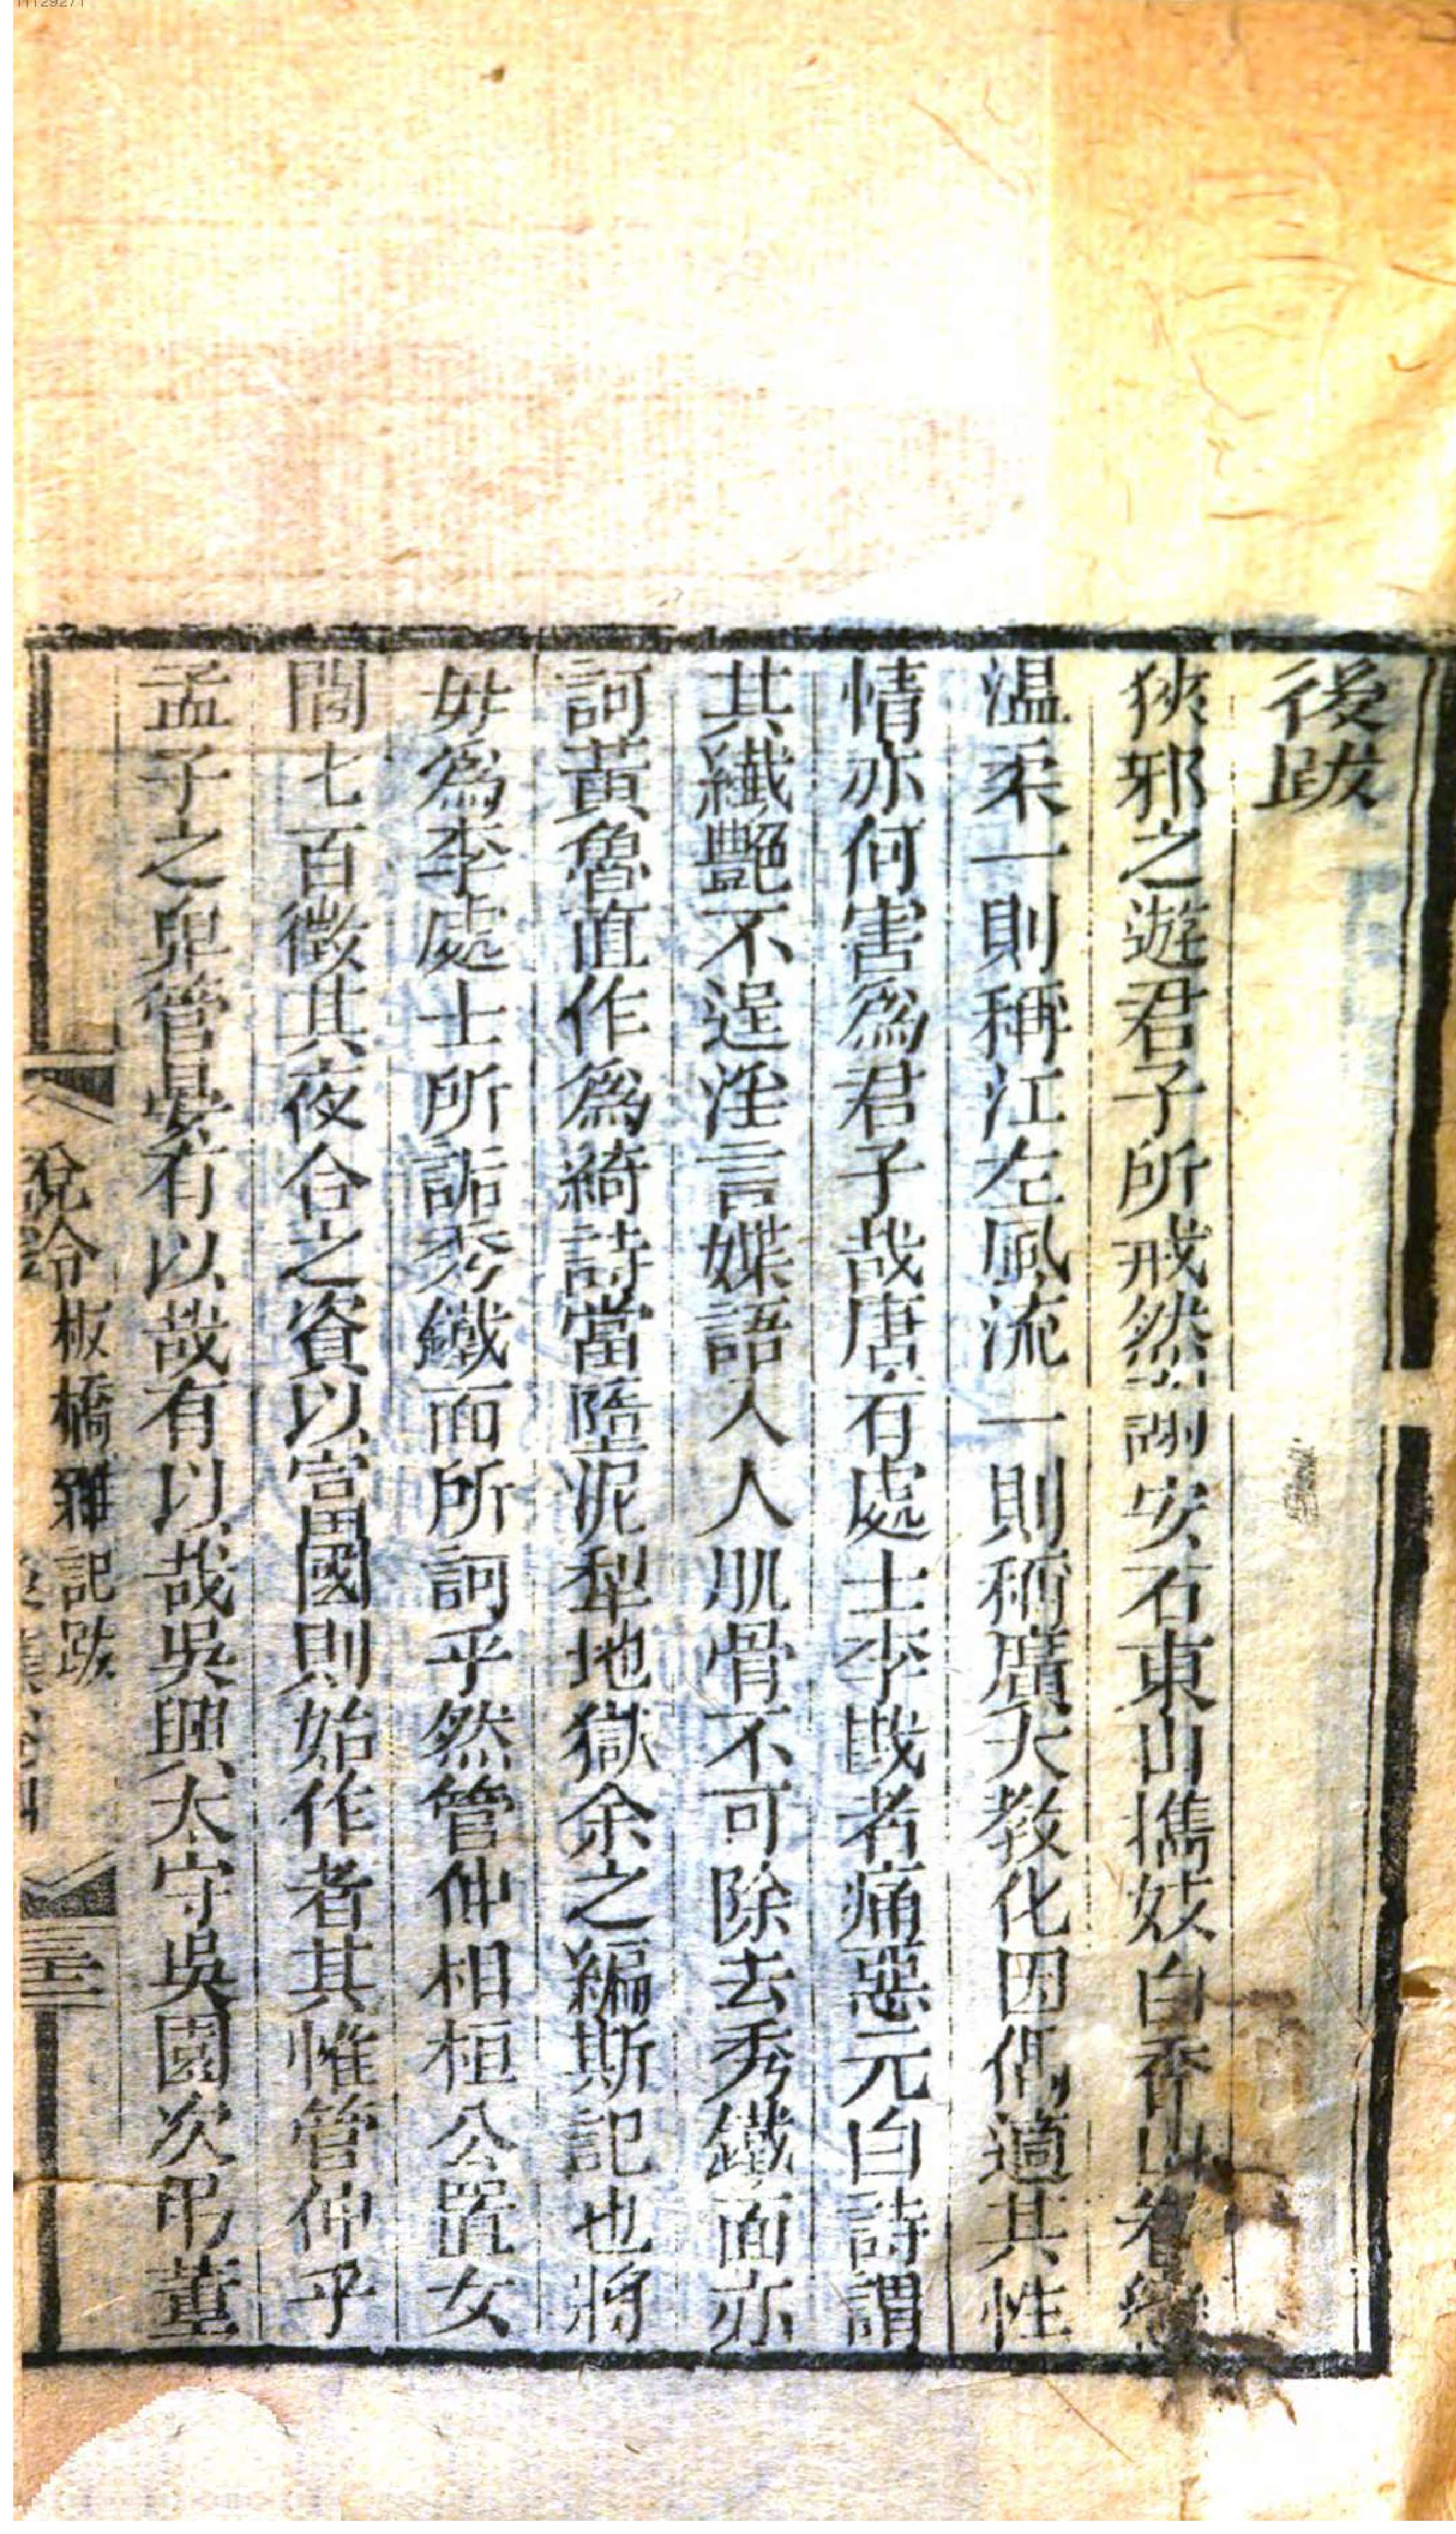 後跋
狹邪之遊君子所戒然謝安石東山攜妓白香山眷戀
温柔一則稱江左風流一則稱廣大教化因偶適其性
情亦何害爲君子哉唐有處士李戡者痛惡元白詩謂
其纖艷不逞淫言媟語入人肌骨不可除去秀鐵面亦
訶黃魯直作爲綺詩當墮泥犁地獄余之編斯記也將
毋爲李處士所詬秀鐵面所訶乎然管仲相桓公置女
閭七百徵其夜合之資以富國則始作者其惟管仲乎
孟子之卑管晏有以哉有以哉吳興太守吳園次弔董
說鈴 板橋雜記跋
三十二
11129271